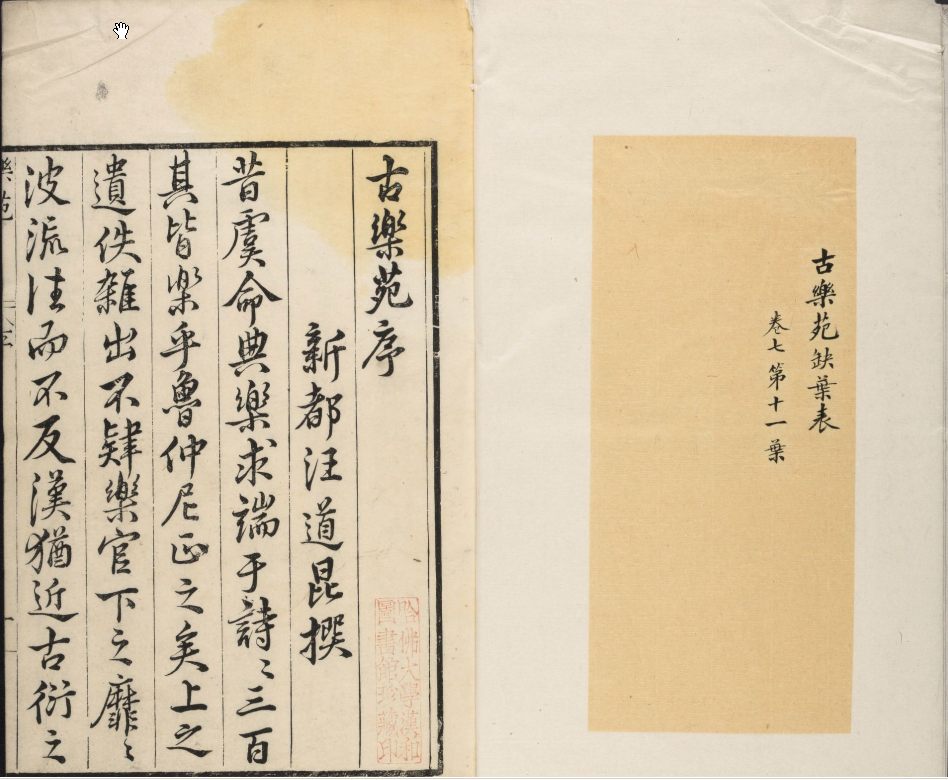 古樂苑缺葉表
卷七第十一葉
古樂苑序
新都汪道昆撰
昔虞命典樂求端于詩〻三百
其皆樂乎魯仲尼正之矣上之
遺佚雜出不肄樂官下之靡〻
波流往而不反漢猶近古衍之
樂苑
哈佛大學漢和
圖書館珍藏印